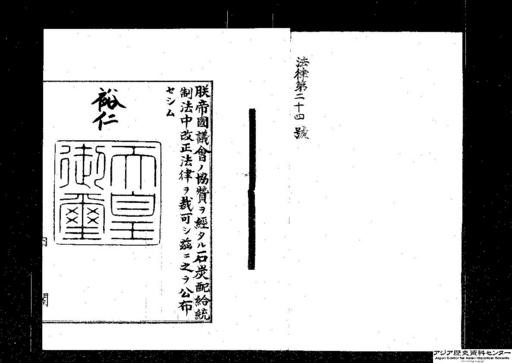 法律第二十四號
朕帝國議會ノ協賛ヲ經タル石炭配給統
制法中改正法律ヲ裁可シ茲ニ之ヲ公布
セシム
裕仁
天皇
御璽
内閣
アジア歴史資料センター
Japan Center for Asian Historical Records